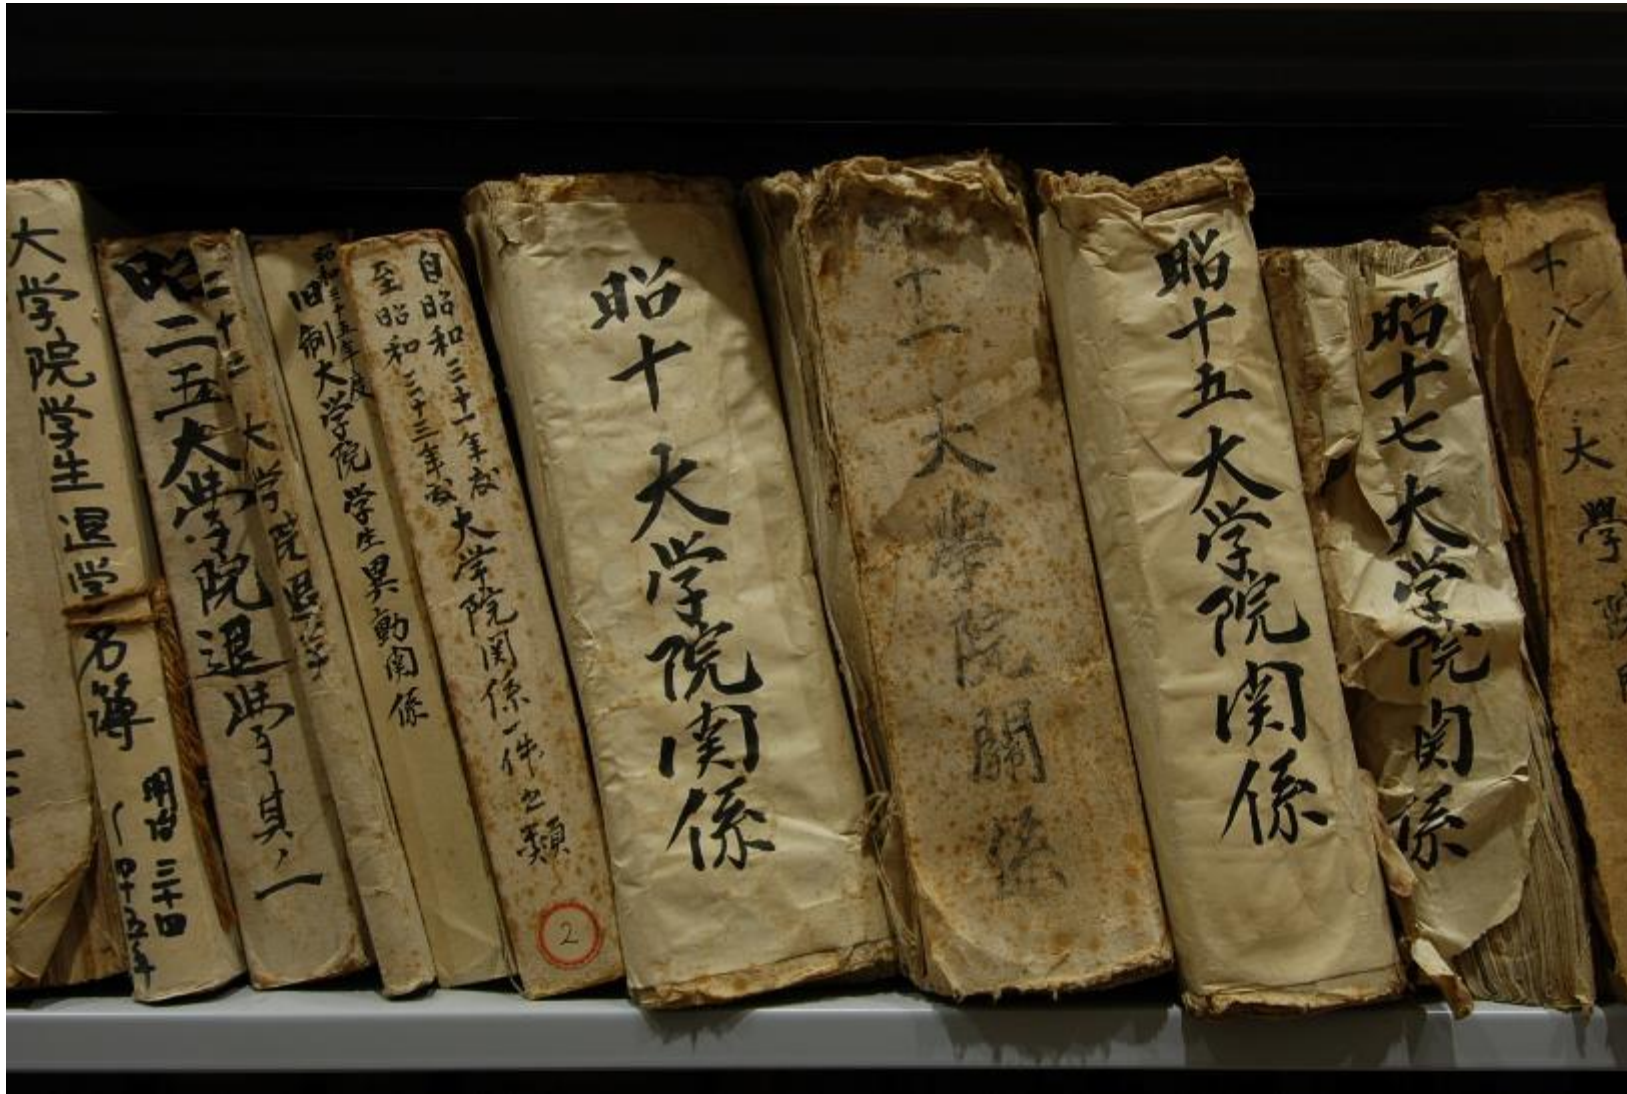 大学院学生退学名簿
明治三十四
〜四十五年
昭二五大学院退学其ノ一
二十三 大学院退学
昭和三十五年度
旧制大学院学生異動関係
自昭和三十一年度
至昭和三十三年度
大学院関係一件書類
2
昭十 大学院関係
十一 大學院關係
昭十五大学院関係
昭十七大学院関係
十八 大學院